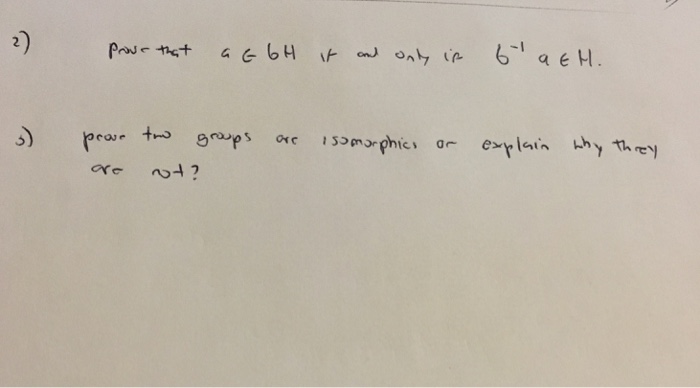 2) prove that a ∈ bH if and only if b⁻¹ a ∈ H.
3) prove two groups are isomorphics or explain why they
are not?